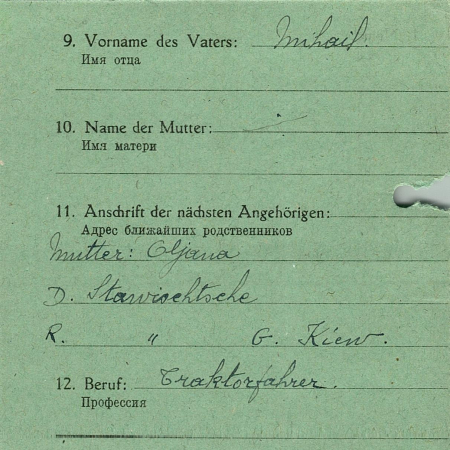 9. Vorname des Vaters: Mihail.
Имя отца
10. Name der Mutter: —
Имя матери
11. Anschrift der nächsten Angehörigen:
Адрес ближайших родственников
Mutter: Oljana
D. Stawischtsche
R. " G. Kiew.
12. Beruf: Traktorfahrer.
Профессия